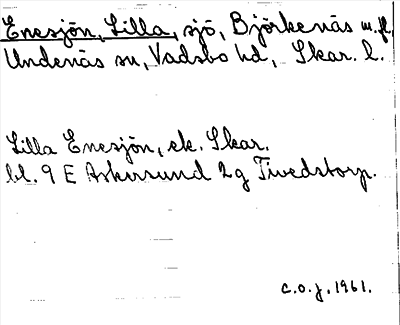 Enesjön, Lilla, sjö, Björkenäs m.fl.
Undenäs sn, Vadsbo hd, Skar. l.
Lilla Enesjön, ek. Skar.
bl. 9 E Askersund 2g Tivedstorp.
c.o.j. 1961.